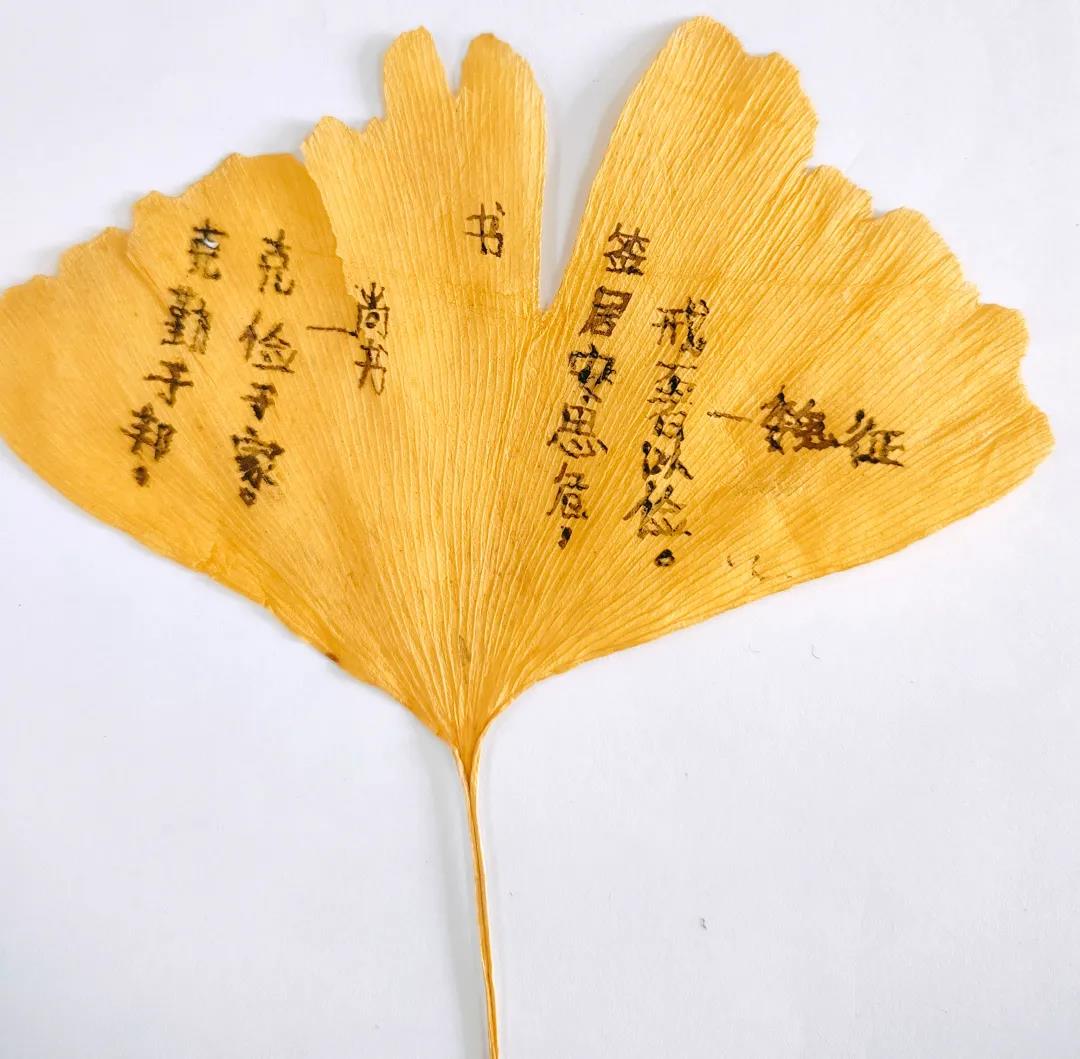 书签
克勤于邦.
克俭于家。
—尚书
居安思危.
戒奢以俭。
—魏征